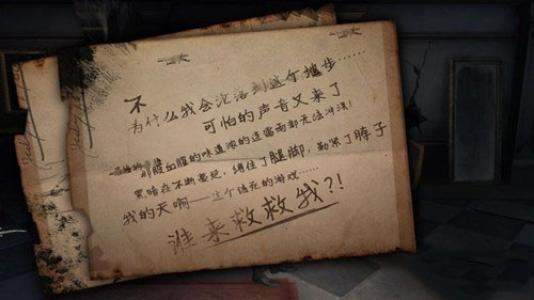 不
为什么我会沦落到这个地步……
可怕的声音又来了
那股血腥的味道浓的连雷雨都无法冲淡!
黑暗在不断蔓延，缠住了腿脚，勒紧了脖子
我的天啊——这个该死的游戏……
谁来救救我?!